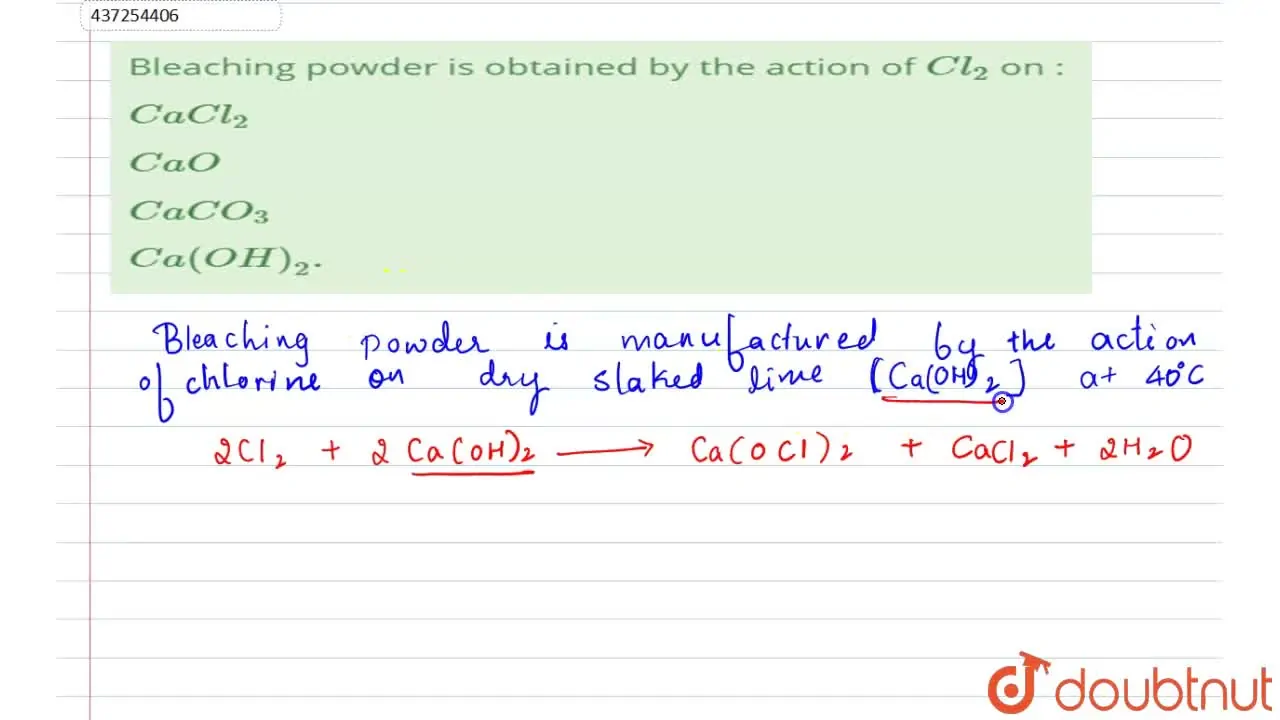 437254406
Bleaching powder is obtained by the action of Cl₂ on :
CaCl₂
CaO
CaCO₃
Ca(OH)₂.
Bleaching powder is manufactured by the action
of chlorine on dry slaked lime [Ca(OH)₂] at 40°C
2Cl₂ + 2 Ca(OH)₂ ⟶ Ca(OCl)₂ + CaCl₂ + 2H₂O
doubtnut